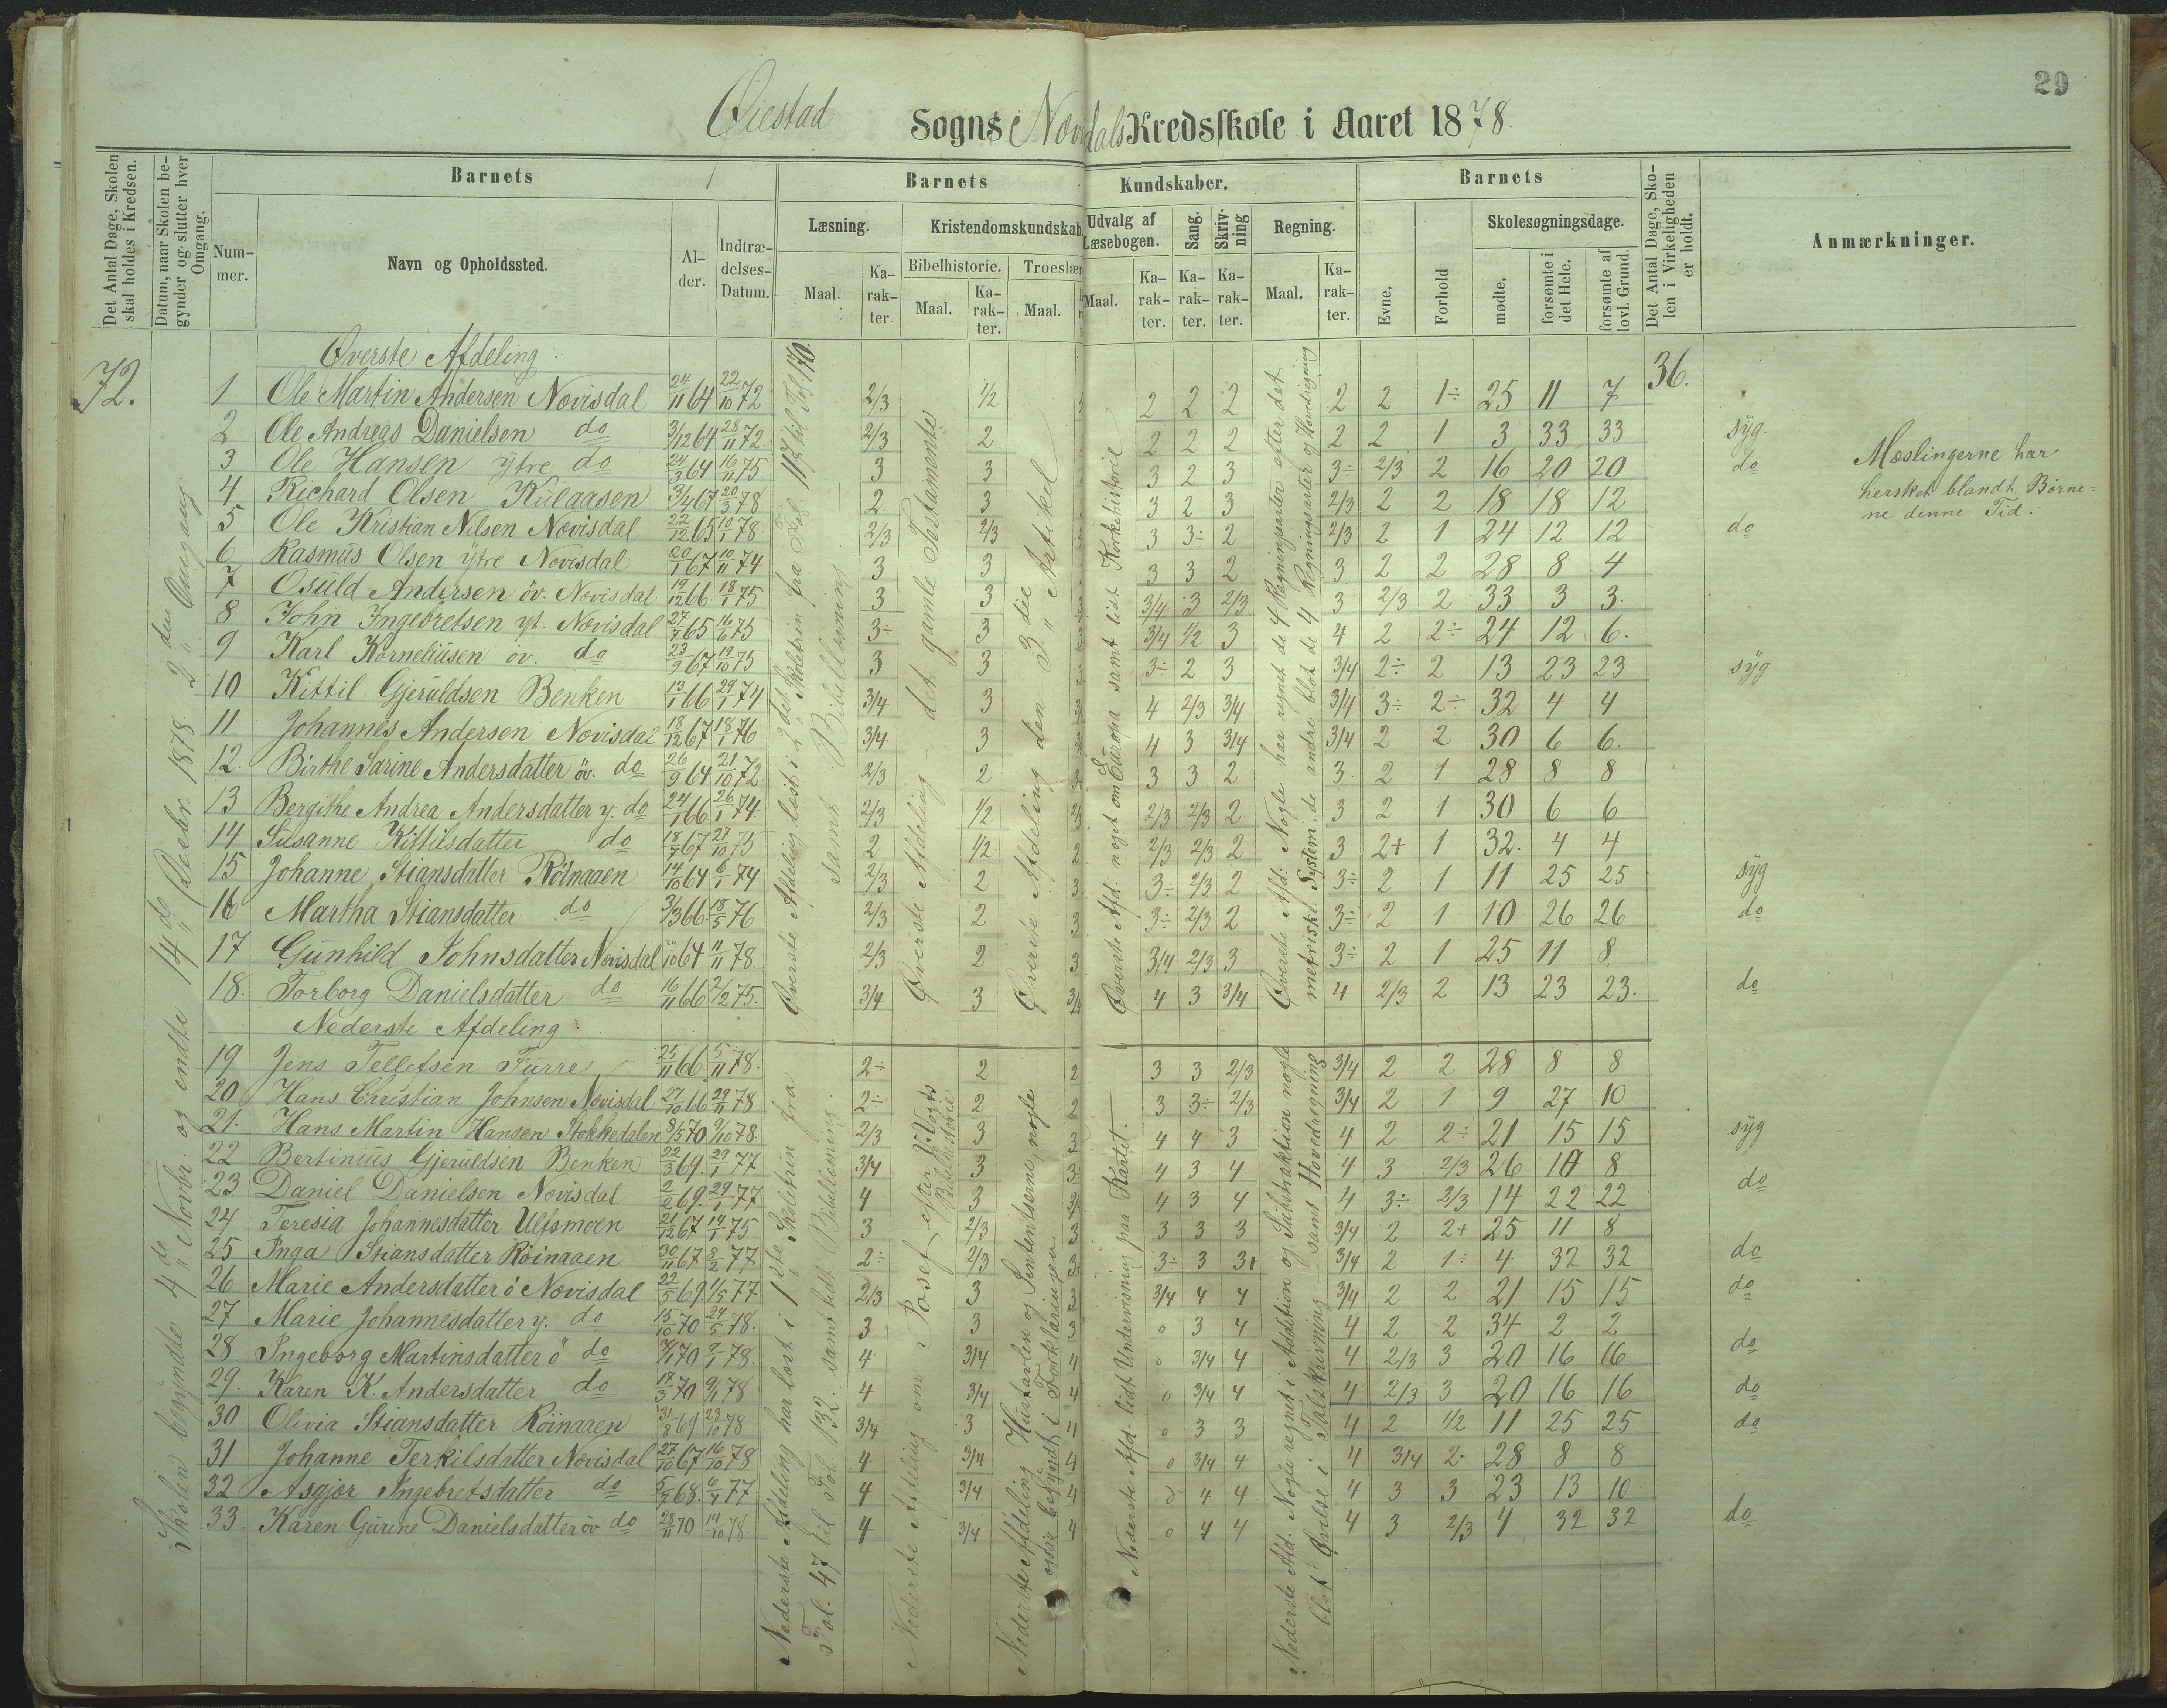 29
Øiestad Sogns Novisdals Kredsskole i Aaret 1878.
Det Antal Dage, Skolen skal holdes i Kredsen.
Datum, naar Skolen begynder og slutter hver Omgang.
Barnets
Nummer.
Navn og Opholdssted.
Alder.
Indtrædelses-Datum.
Barnets Kundskaber.
Læsning.
Maal.
Karakter
Kristendomskundskab
Bibelhistorie.
Maal.
Karakter.
Troeslær
Maal.
Udvalg af Læsebogen.
Maal.
Karakter.
Sang.
Karakter.
Skrivning
Karakter.
Regning.
Maal.
Karakter.
Barnets
Evne.
Forhold
Skolesøgningsdage.
mødte.
forsømte i det Hele.
forsømte af lovl. Grund
Det Antal Dage, Skolen i Virkeligheden er holdt.
Anmærkninger.
72.
36.
Skolen begyndte 4de Novbr. og endte 14de Decbr. 1878 2den Omgang.
Øverste Afdeling
1 Ole Martin Andersen Novisdal 24/11 64 22/10 72 2/3 1/2 2 2 2 2 2 1÷ 25 11 7
2 Ole Andreas Danielsen do 3/12 64 28/11 72 2/3 2 2 2 2 2 2 1 3 33 33 syg.
3 Ole Hansen ytre do 24/3 64 16/11 75 3 3 3 2 3 3÷ 2/3 2 16 20 20 do
4 Richard Olsen Kulaasen 3/4 67 20/3 78 2 3 3 2 3 2/3 2 2 18 18 12
5 Ole Kristian Nilsen Novisdal 22/12 65 10/1 78 2/3 2/3 3 3÷ 2 2/3 2 1 24 12 12 do
6 Rasmus Olsen ytre Novisdal 20/1 67 10/11 74 3 3 3 3 2 3 2 2 28 8 4
7 Osuld Andersen öv. Novisdal 19/12 66 18/1 75 3 3 3/4 3 2/3 3 2/3 2 33 3 3.
8 John Ingebretsen yt. Novisdal 27/7 65 16/6 75 3÷ 3 3/4 1/2 3 4 2 2÷ 24 12 6.
9 Karl Korneliusen öv. do 23/9 67 19/10 75 3 3 3÷ 2 3 3/4 2÷ 2 13 23 23 syg
10 Kittil Gjeruldsen Benken 13/1 66 29/1 74 3/4 3 4 2/3 3/4 3/4 3÷ 2÷ 32 4 4
11 Johannes Andersen Novisdal 18/12 67 18/1 76 3/4 3 4 3 3/4 3/4 2 2 30 6 6.
12. Birthe Sarine Andersdatter öv. do 26/9 64 21/10 72. 2/3 2 3 3 2 3 2 1 28 8 8
13 Bergithe Andrea Andersdatter y. do 24/1 66 26/1 74. 2/3 1/2 2/3 2/3 2 3 2 1 30 6 6
14 Susanne Kittilsdatter do 18/7 67 27/10 75 2 1/2 2/3 2/3 2 3 2+ 1 32. 4 4
15 Johanne Stiansdatter Röinaaen 14/10 64 6/1 74 2/3 2 3÷ 2/3 2 3÷ 2 1 11 25 25 syg
16 Martha Stiansdatter do 3/3 66 18/5 76 2/3 2 3÷ 2/3 2 3÷ 2 1 10 26 26 do
17 Gunhild Johnsdatter Novisdal 64 11/11 78. 2/3 2 3/4 2/3 3 3÷ 2 1 25 11 8
18. Torborg Danielsdatter do 16/11 66 2/12 75. 3/4 3 4 3 3/4 4 2/3 2 13 23 23. do
Nederste Afdeling
19 Jens Tellefsen Furre 25/11 66 5/11 78. 2÷ 2 2 3 3 2/3 3/4 2 2 28 8 8
20 Hans Christian Johnsen Novisdal 27/10 66 29/11 78 2÷ 2 2 3 3÷ 2/3 3/4 2 1 9 27 10
21. Hans Martin Hansen Stokkedalen 8/5 70 9/10 78. 2/3 3 3 4 4 3 4 2 2÷ 21 15 15 syg
22 Bertinius Gjeruldsen Benken 22/3 69. 29/1 77 3/4 3 4 3 4 4 3 2/3 26 10 8
23 Daniel Danielsen Novisdal 2/2 69. 29/1 77 4 3 4 3 4 4 3÷ 2/3 14 22 22 do
24 Teresia Johannesdatter Ulfsmoen 21/12 67 14/1 75 3 2/3 3 3 3 3/4 2 2+ 25 11 8
25 Inga Stiansdatter Röinaaen 30/11 67 8/2 77 2÷ 2/3 3÷ 3 3+ 3/4 2 1÷ 4 32 32 do
26 Marie Andersdatter ö Novisdal 22/5 69 1/5 77 2/3 3 3 3/4 4 4 3/4 2 2 21 15 15 do
27 Marie Johannesdatter y. do 15/10 70 24/5 78. 3 3 3 0 3 4 4 2 2 34 2 2
28 Ingeborg Martinsdatter ö do 70 9/1 78. 4 3/4 4 0 3/4 4 4 2/3 3 20 16 16 do
29. Karen K. Andersdatter do 17/3 70 9/1 78 4 3/4 4 0 3/4 4 4 2/3 3 20 16 16 do
30 Olivia Stiansdatter Röinaaen 31/8 69 23/10 78 3/4 3 4 0 3 3 4 2 1/2 11 25 25. do
31 Johanne Terkilsdatter Novisdal 27/10 67 16/10 78 4 3/4 4 0 3/4 4 4 3/4 2. 28 8 8
32 Asgjör Ingebretsdatter do 5/7 68. 6/4 77 4 3/4 4 0 4 4 4 3 3 23 13 10
33 Karen Gurine Danielsdatter öv do 28/11 70 14/10 78 4 3/4 4 0 4 4 4 3 2/3 4 32 32 do
Øverste Afdeling læst i 2det Skoletrin fra Fol. 117 til Fol. 170.
samt Bibellæsning
Øverste Afdeling det gamle Testamente
Øverste Afdeling den 3die Artikel
Øverste Afd. noget om Europa samt lidt Kirkehistorie
Øverste Afd. Nogle har regnet de 4 Regningsarter efter det
metriske System, de andre blot de 4 Regningsarter og Hovedregning
Nederste Afdeling har læst i 1ste Skoletrin fra
Fol. 47 til Fol. 132. samt lidt Bibellæsning.
Nederste Afdeling om Josef efter V. Vogts
Bibelhistorie
Nederste Afdeling Hustavlen og Sententserne, nogle
ogsaa begyndt i Forklaringen
Nederste Afd. lidt Undervisning paa Kartet.
Nederste Afd. Nogle regnet i Addition og Substraktion nogle
blot Øvelse i Talskrivning samt Hovedregning
Mæslingerne har
hersket blandt Børne=
ne denne Tid.